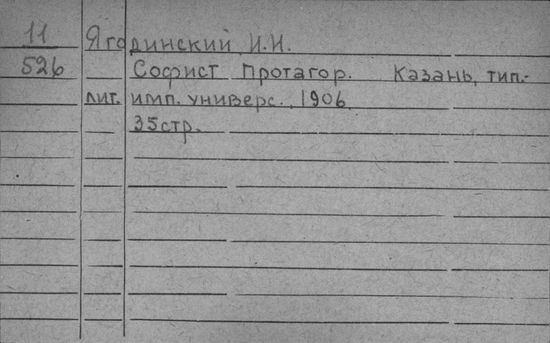 11 Ягодинский, И.И.
526 Софист Протагор. Казань, тип.-
лит. имп. универс., 1906
35стр.